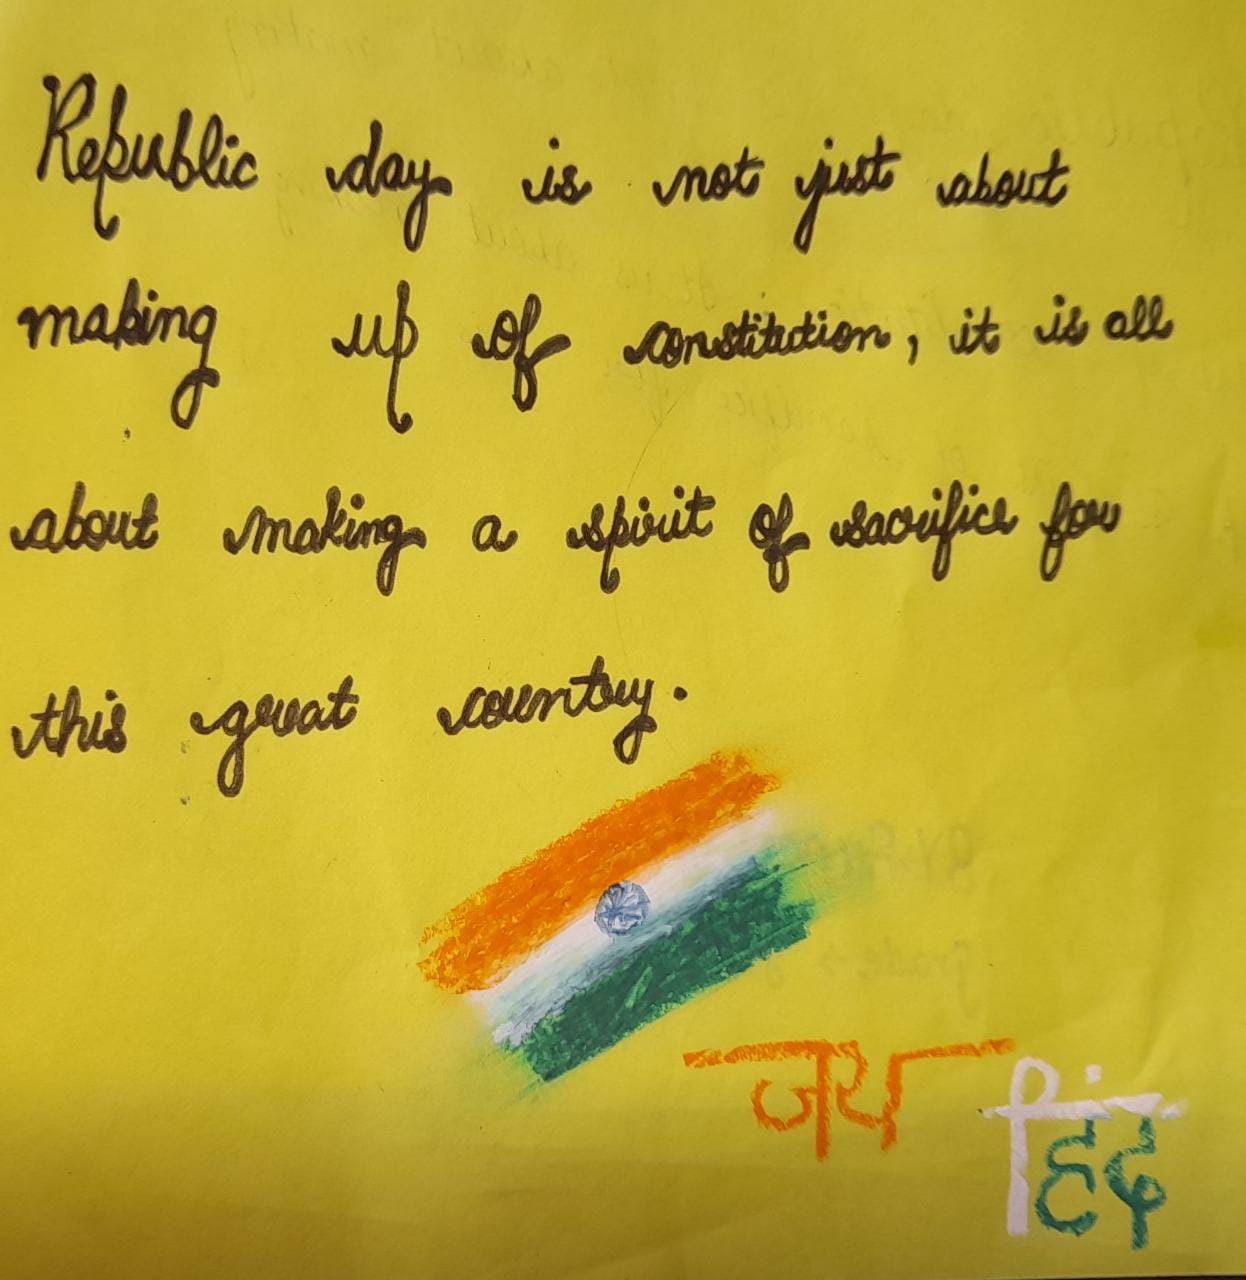 Republic day is not just about
making up of constitution, it is all
about making a spirit of sacrifice for
this great country.
जय हिंद